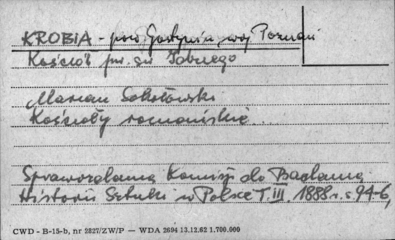 KROBIA - pow. Gostynin, woj. Poznań
Kościół pw. św. Idziego
Marian Sokołowski
Kościoły romańskie...
Sprawozdania Komisji do Badania
Historii Sztuki w Polsce T. III. 1888 r. s. 94-6,
CWD - B-15-b, nr 2827/ZW/P — WDA 2694 13.12.62 1.700.000